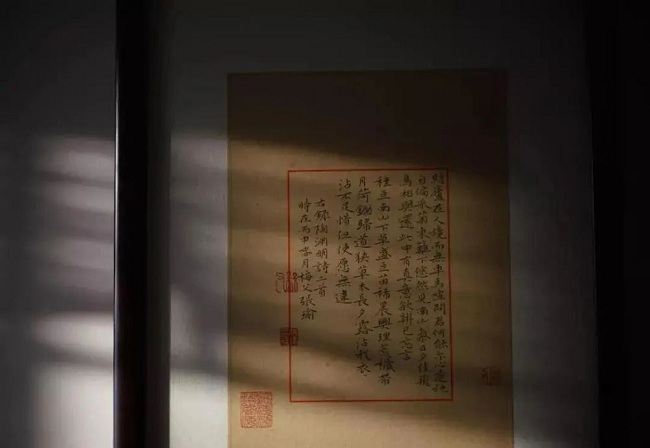 結廬在人境而無車馬喧問君何能尔心遠地
自偏采菊東籬下悠然見南山氣日夕佳飛
鳥相與還此中有真意欲辨已忘言
種豆南山下草盛豆苗稀晨興理荒穢帶
月荷鋤歸道狹草木長夕露沾我衣
沾不足惜但使愿無違
右錄陶淵明詩二首
時在丙申月梅父張瑜